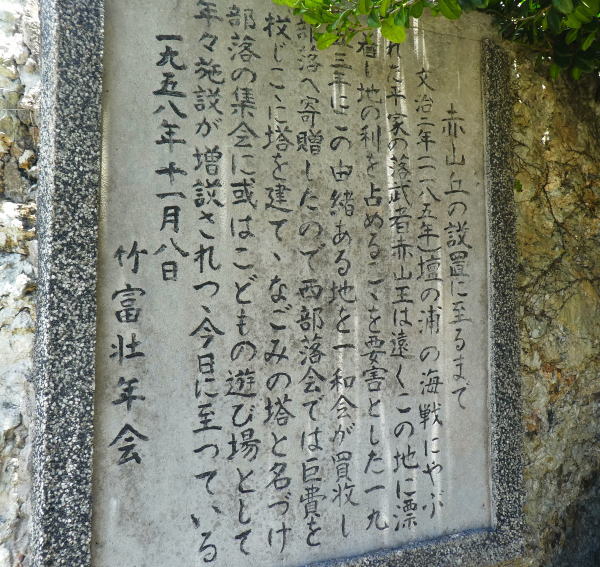 赤山丘の設置に至るまで
文治二年(一一八五年)壇の浦の海戦にやぶ
れた平家の落武者赤山王は遠くこの地に漂
着し地の利を占めるこゝを要害とした一九
三年にこの由緒ある地を一和会が買收し
部落へ寄贈したので西部落会では巨費を
投じこに塔を建て、なごみの塔と名づけ
部落の集会に或はこどもの遊び場として
年々施設が増設されつゝ今日に至つている
一九五八年十一月八日
竹富壮年会